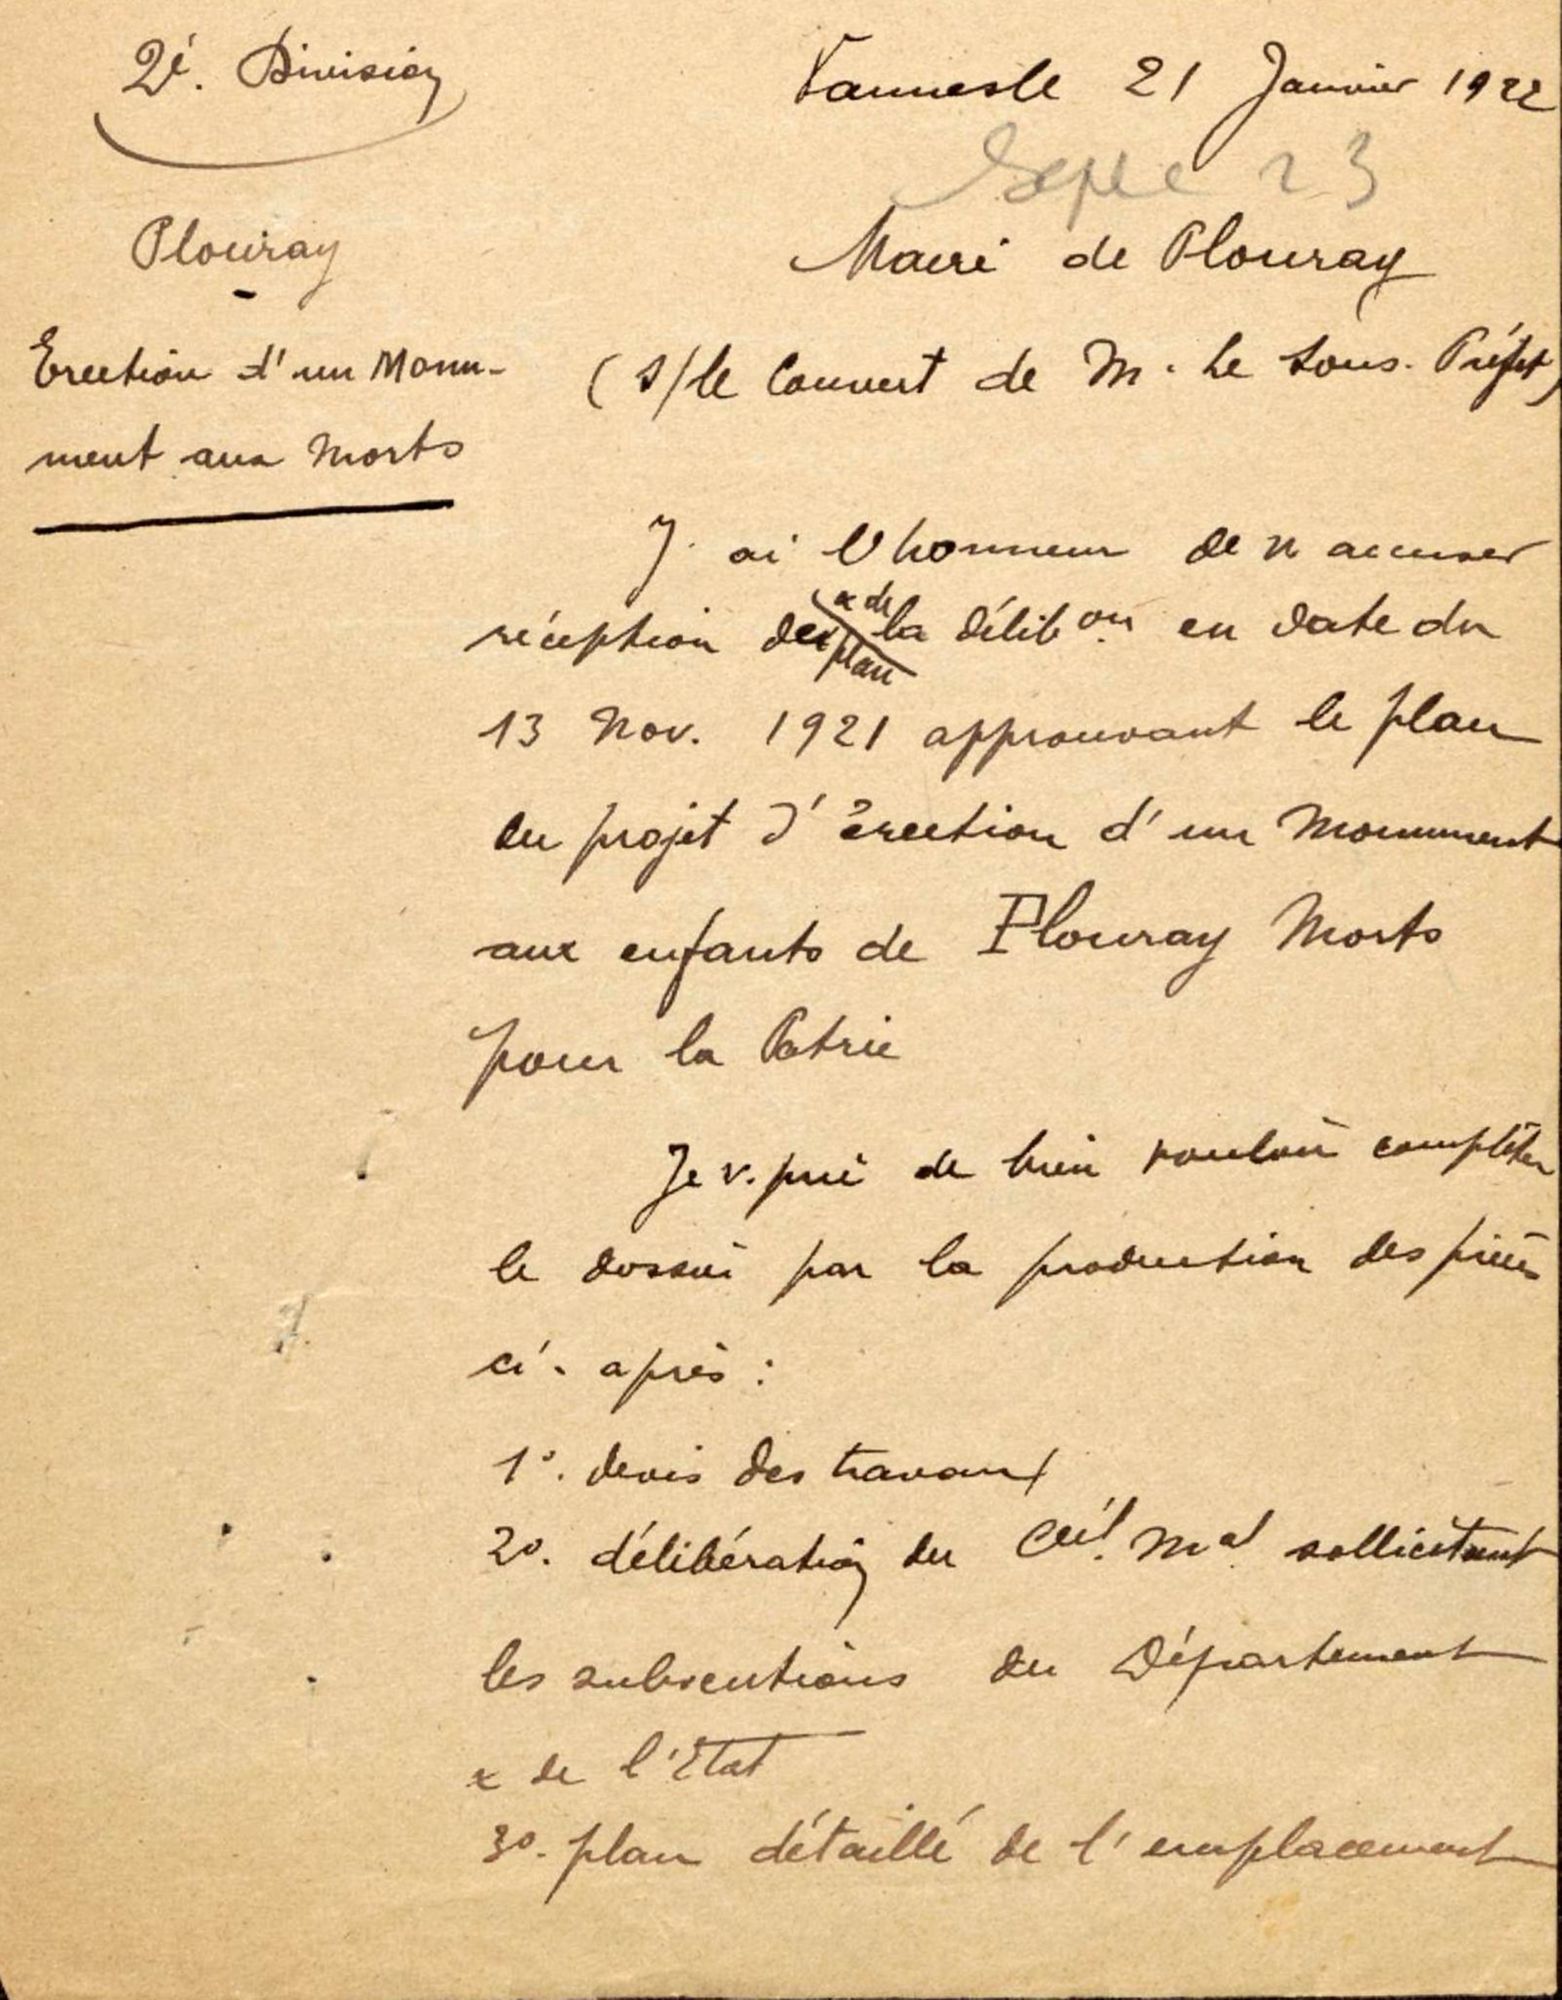 2è. Division
Vannes le 21 Janvier 1922
23
Plouray
Maire de Plouray
Erection d'un Monu-
ment aux Morts
(s/le Couvert de M. le Sous-Préfet)
J'ai l'honneur de v accuser
réception des plan & de la délibon en date du
13 Nov. 1921 approuvant le plan
du projet d'érection d'un Monument
aux enfants de Plouray Morts
pour la Patrie
Je v. prie de bien vouloir compléter
le dossier par la production des pièces
ci-après :
1°. devis des travaux
2°. délibération du Ceil. Mal sollicitant
les subventions du Département
& de l'Etat
3°. plan détaillé de l'emplacement